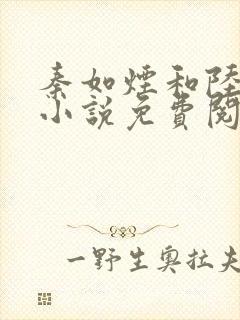 秦如煙和陸
小說免費閱
一野生奧拉夫